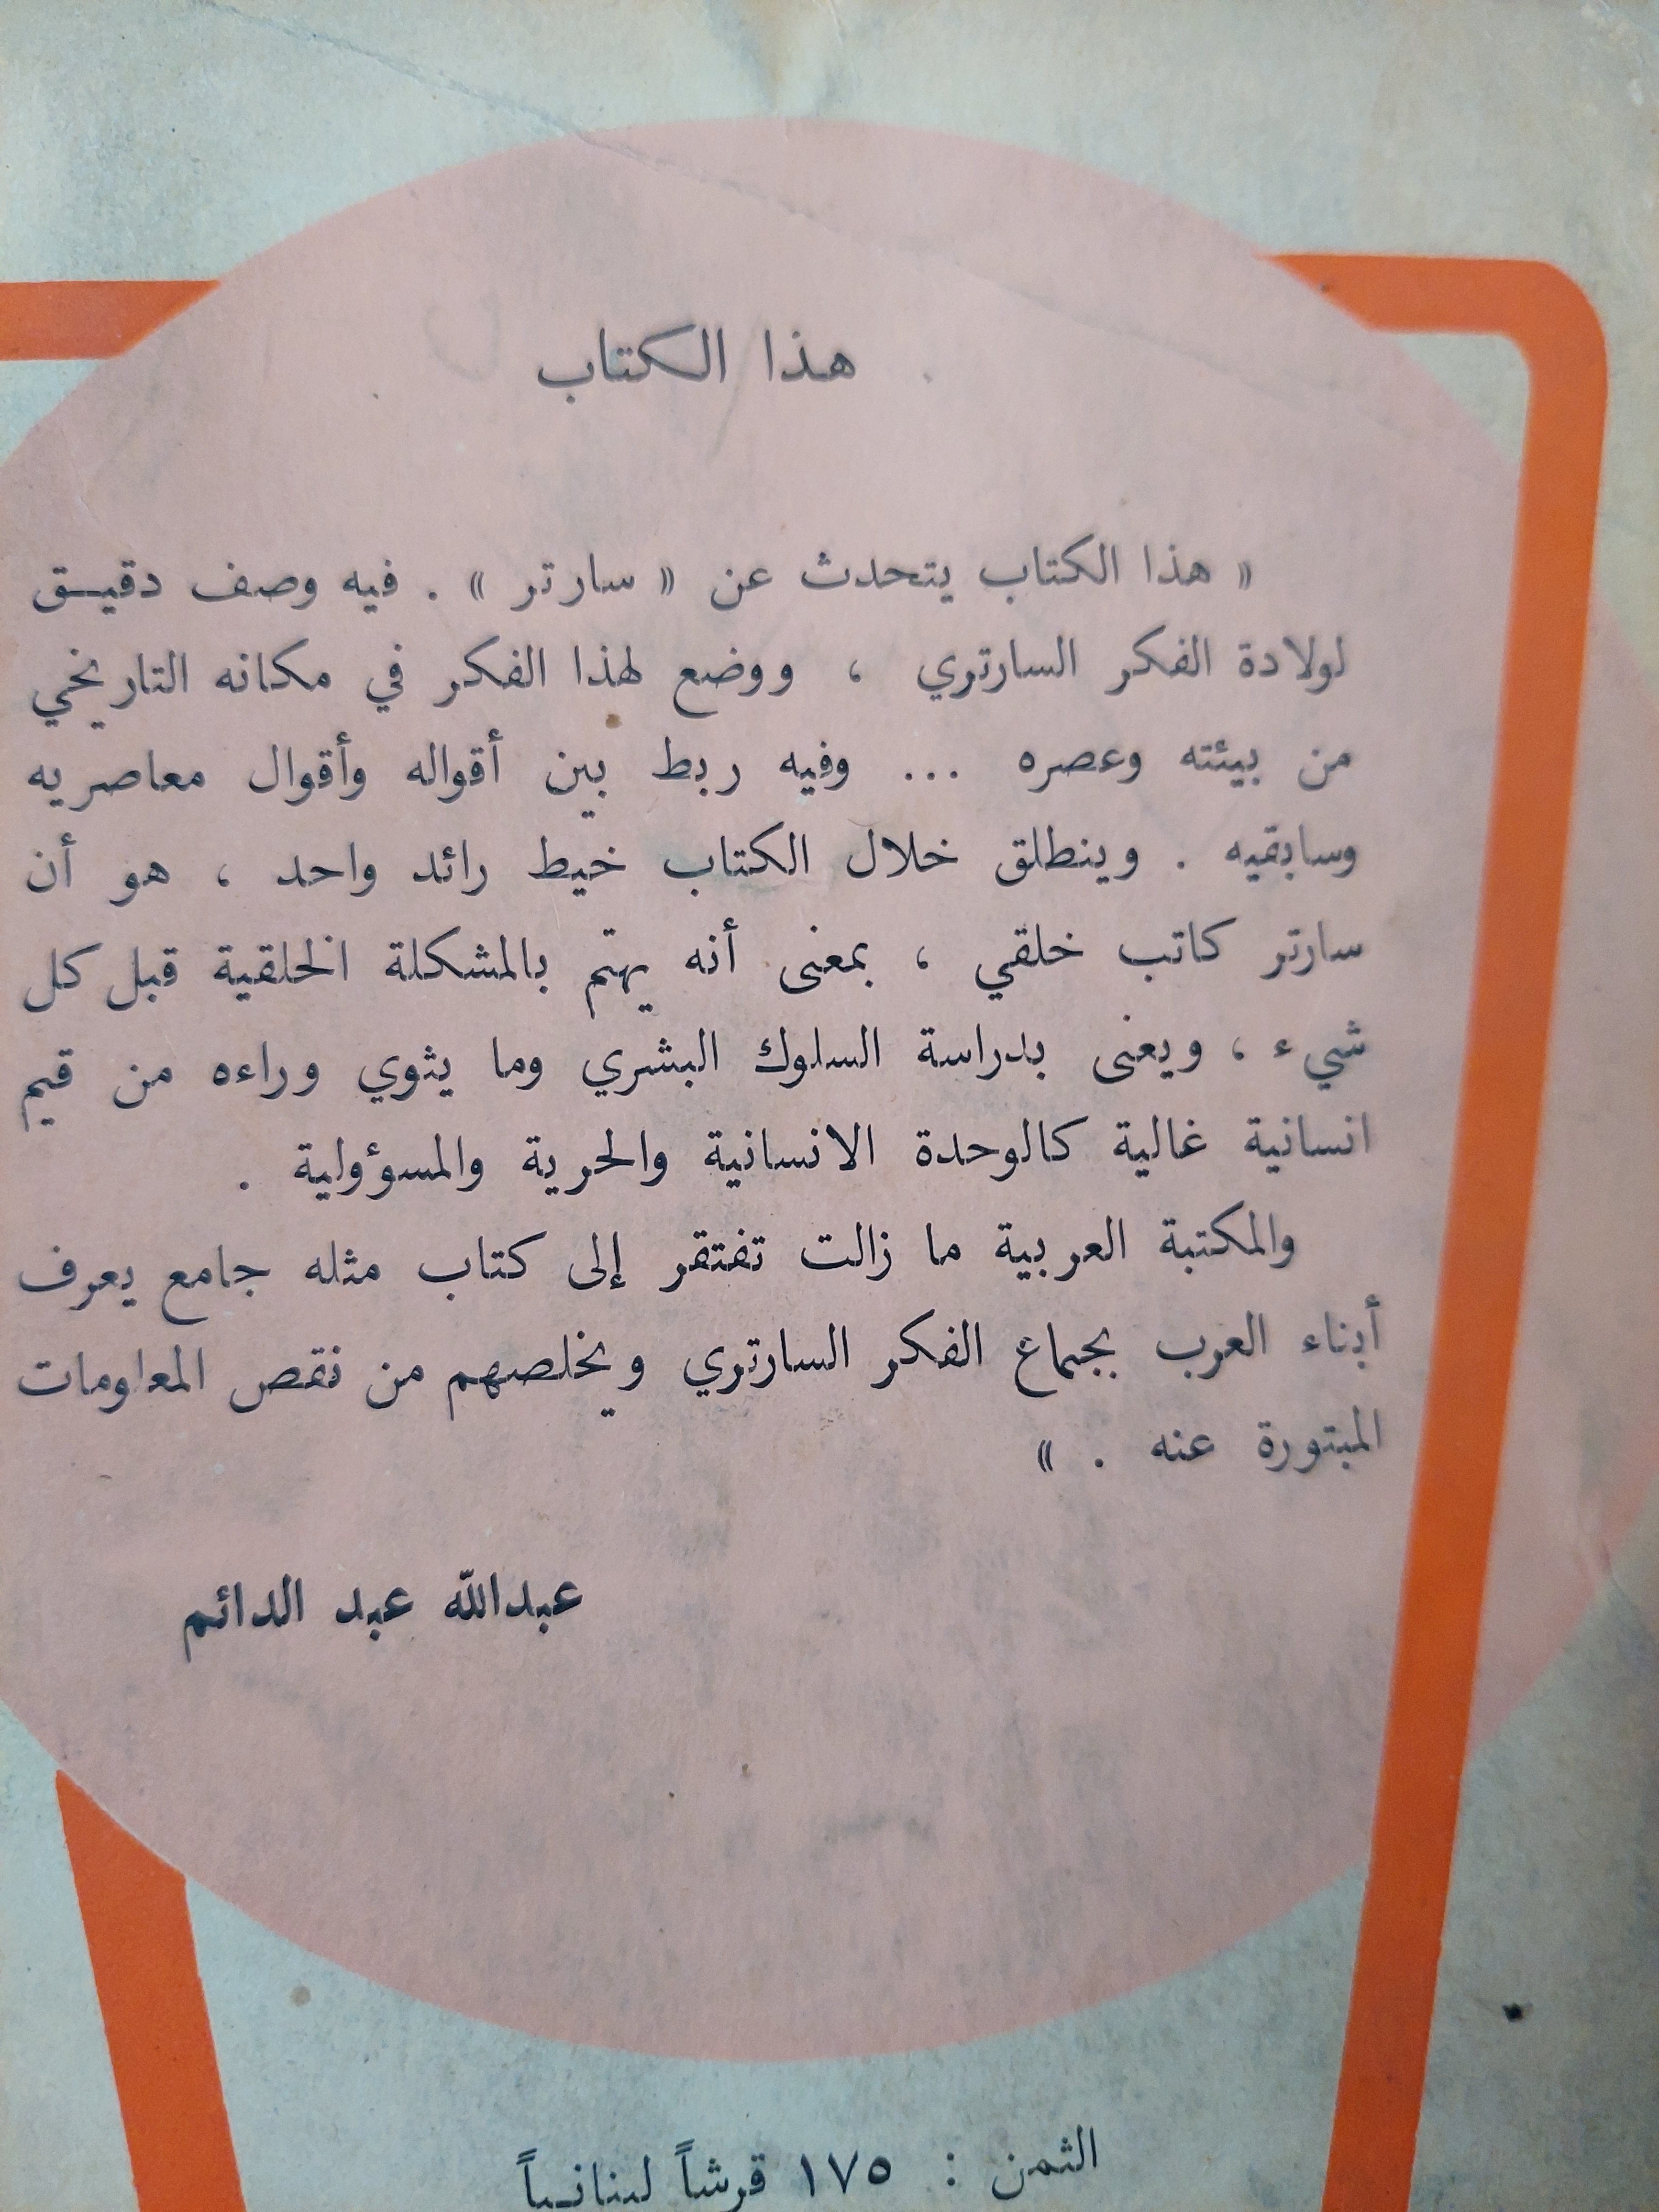 هذا الكتاب
« هذا الكتاب يتحدث عن « سارتر » . فيه وصف دقيـق
لولادة الفكر السارتري ، ووضع لهذا الفكر في مكانه التاريخي
من بيئته وعصره ... وفيه ربط بين أقواله وأقوال معاصريه
وسابقيه . وينطلق خلال الكتاب خيط رائد واحد ، هو أن
سارتر كاتب خلقي ، بمعنى أنه يهتم بالمشكلة الخلقية قبل كل
شيء ، ويعنى بدراسة السلوك البشري وما يثوي وراءه من قيم
انسانية غالية كالوحدة الانسانية والحرية والمسؤولية .
والمكتبة العربية ما زالت تفتقر إلى كتاب مثله جامع يعرف
أبناء العرب بجماع الفكر السارتري ويخلصهم من نقص المعلومات
المبتورة عنه . »
عبدالله عبد الدائم
الثمن : ١٧٥ قرشاً لبنانياً